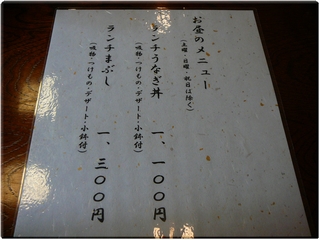 お昼のメニュー
(土曜・日曜・祝日は除く)
ランチうなぎ丼 一、一〇〇円
(吸物・つけもの・デザート・小鉢付)
ランチまぶし 一、三〇〇円
(吸物・つけもの・デザート・小鉢付)